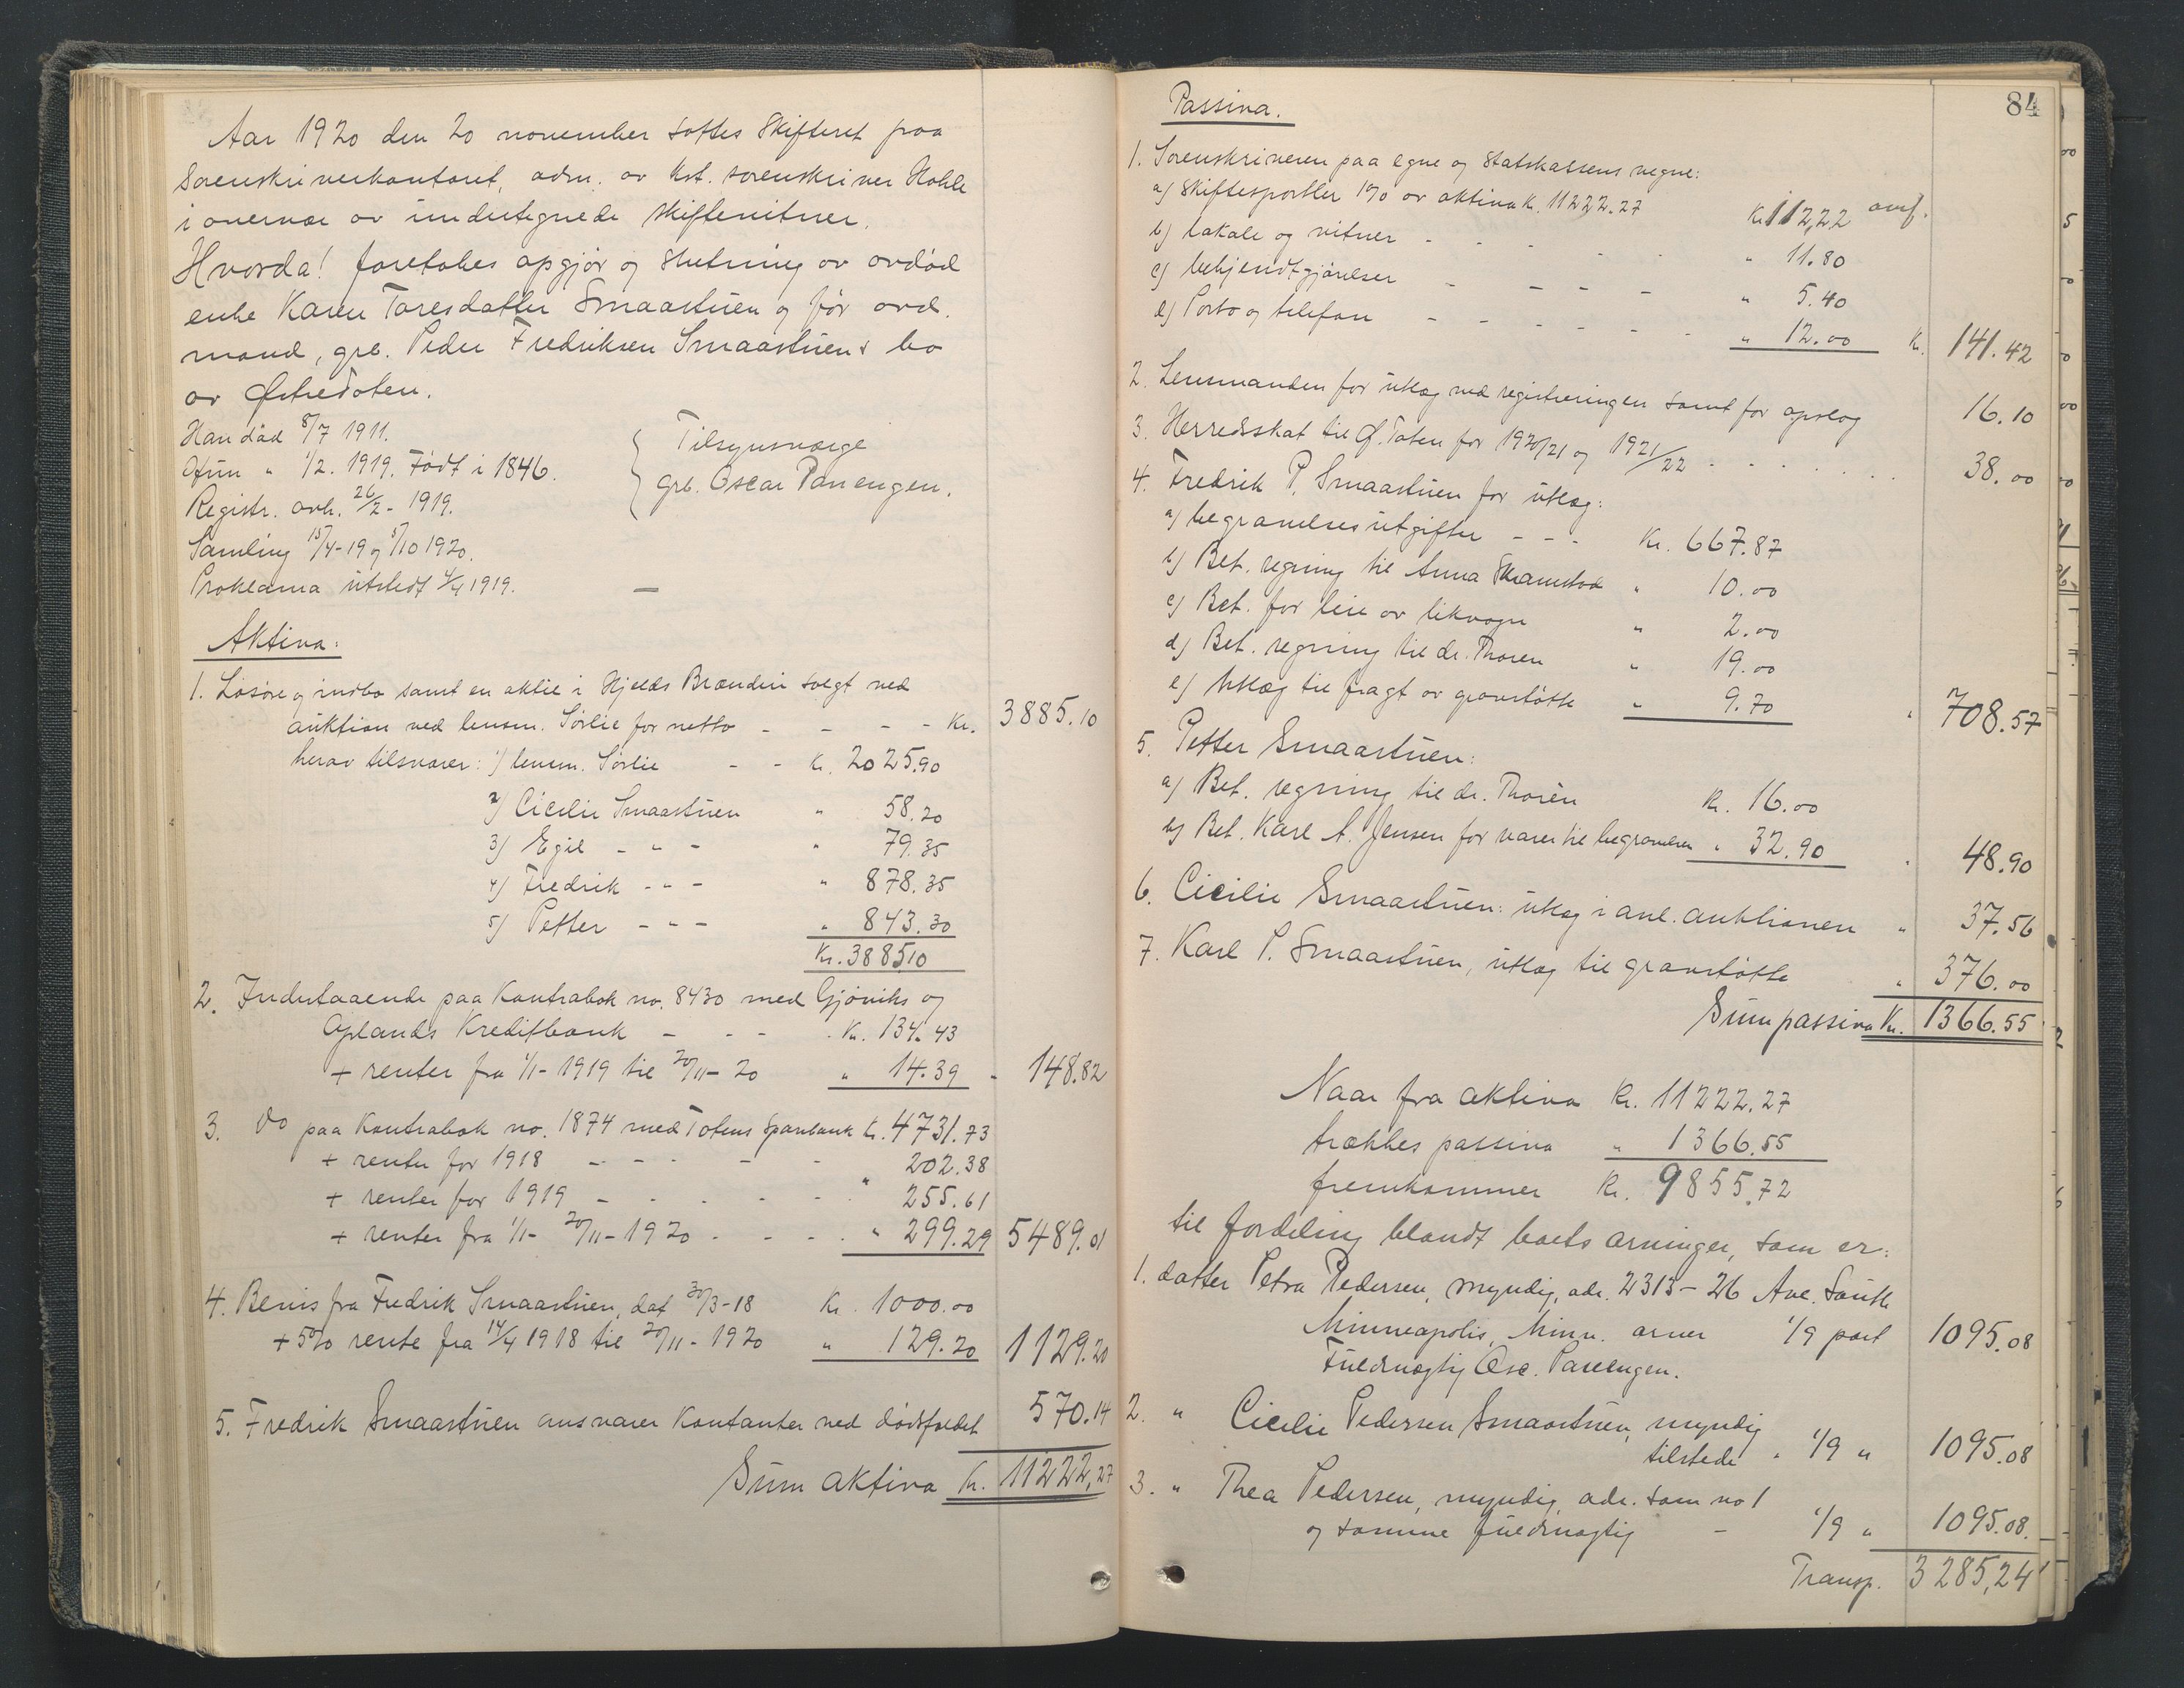 Aar 1920 den 20 november sattes skifteret paa
sorenskriverkontoret, adm. av kst. sorenskriver Hohle
i overvær av undertegnede skiftevitner.
Hvorda! foretokes opgjør og slutning av avdød
enke Karen Toresdatter Smaastuen og før avd.
mand, grb. Peder Fredriksen Smaastuens bo
av Østre Toten.
Han død 8/7 1911.
Hun " 1/2. 1919. Født i 1846.
Registr. avh. 26/2 - 1919.
Samling 15/4-19 og 5/10 1920.
Proklama utstedt 4/4 1919.
Tilsynsværge
grb. Oscar Panengen.
—
Aktiva:
1. Løsøre og indbo samt en aktie i Hjelds Brænderi solgt ved
auktion ved lensm. Sørlie for netto - - - - Kr. 3885.10
herav tilsvarer: 1) lensm. Sørlie - - Kr. 2025.90
2) Cicilie Smaastuen " 58.20
3) Egil - " - " 79.35
4) Fredrik - " - " 878.35
5) Petter - " - " 843.30
Kr. 388510
2. Indestaaende paa Kontrabok no. 8430 med Gjøviks og
Oplands Kreditbank - - - Kr. 134.43
+ renter fra 1/1 - 1919 til 20/11 - 20 " 14.39 - 148.82
3. Do paa Kontrabok no. 1874 med Totens Sparebank Kr. 4731.73
+ renter for 1918 - - - - - 202.38
+ renter for 1919 - - - - - " 255.61
+ renter fra 1/1 - 20/11 - 1920 - - - - " 299.29 5489.01
4. Bevis fra Fredrik Smaastuen, dat 30/3-18 Kr. 1000.00
+ 5% rente fra 14/4 1918 til 20/11 - 1920 " 129.20 1129.20
5. Fredrik Smaastuen ansvarer Kontanter ved dødsfaldet 570.14
Sum aktiva Kr. 11222,27
84
Passiva.
1. Sorenskriveren paa egne og Statskassens vegne:
a) Skiftesportler 1% av aktiva Kr. 11222.27 Kr. 112,22 omf.
b) lokale og vitner - - - - - " 11.80
c) bekjendtgjørelser - - - - " 5.40
d) Porto og telefon - - - - - - " 12.00 Kr. 141.42
2. Lensmanden for utlæg ved registreringen samt for opslag 16.10
3. Herredsskat til Ø. Toten for 1920/21 og 1921/22 - - - - - 38.00
4. Fredrik P. Smaastuen for utlæg:
a) begravelsesutgifter - - - Kr. 667.87
b) Bet. regning til Anna Skramstad " 10.00
c) Bet. for leie av likvogn " 2.00
d) Bet. regning til dr. Thoren " 19.00
e) Utlæg til fragt av gravstøtte " 9.70 " 708.57
5. Petter Smaastuen:
a) Bet. regning til dr. Thorèn Kr. 16.00
b) Bet. Karl A. Jensen for varer til begravelsen " 32.90 " 48.90
6. Cicilie Smaastuen: utlæg i anl. auktionen " 37.56
7. Karl P. Smaastuen, utlæg til gravstøtte " 376.00
Sum passiva Kr. 1366.55
Naar fra aktiva Kr. 11222.27
trækkes passiva " 1366.55
fremkommer Kr. 9855.72
til fordeling blandt boets arvinger, som er:
1. datter Petra Pedersen, myndig, adr. 2313 - 26 Ave. South
Minneapolis, Minn. arver 1/9 part 1095.08
Fuldmægtig Osc. Panengen.
2. " Cicilie Pedersen Smaastuen, myndig
tilstede " 1/9 " 1095.08
3. " Thea Pedersen, myndig, adr. som no 1
og samme fuldmægtig - 1/9 " 1095.08.
Transp. 3285,24